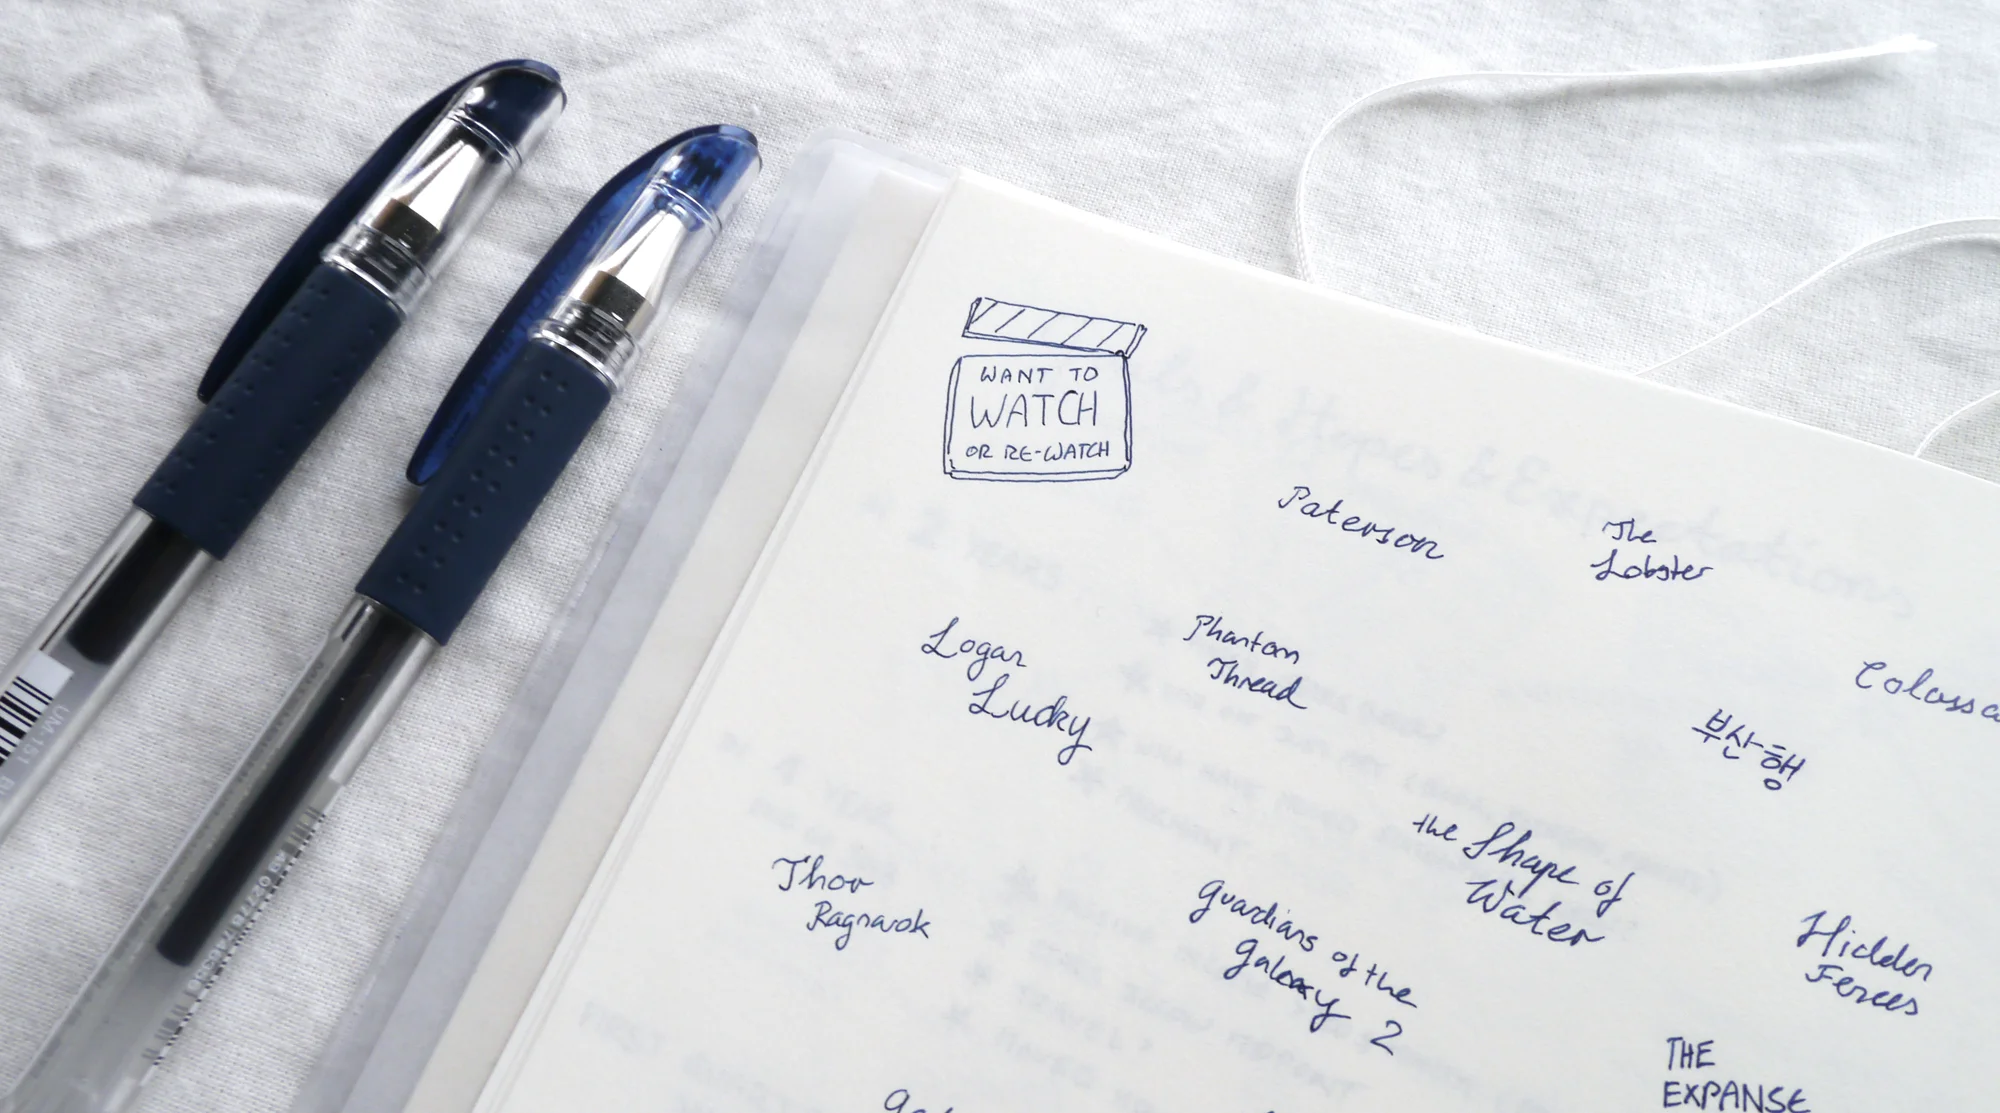 WANT TO
WATCH
OR RE-WATCH
Paterson
The
Lobster
Logan
Lucky
Phantom
Thread
Colossa
부산행
the Shape of
Water
Thor
Ragnarok
guardians of the
galaxy 2
Hidden
Fences
THE
EXPANSE
UM-151